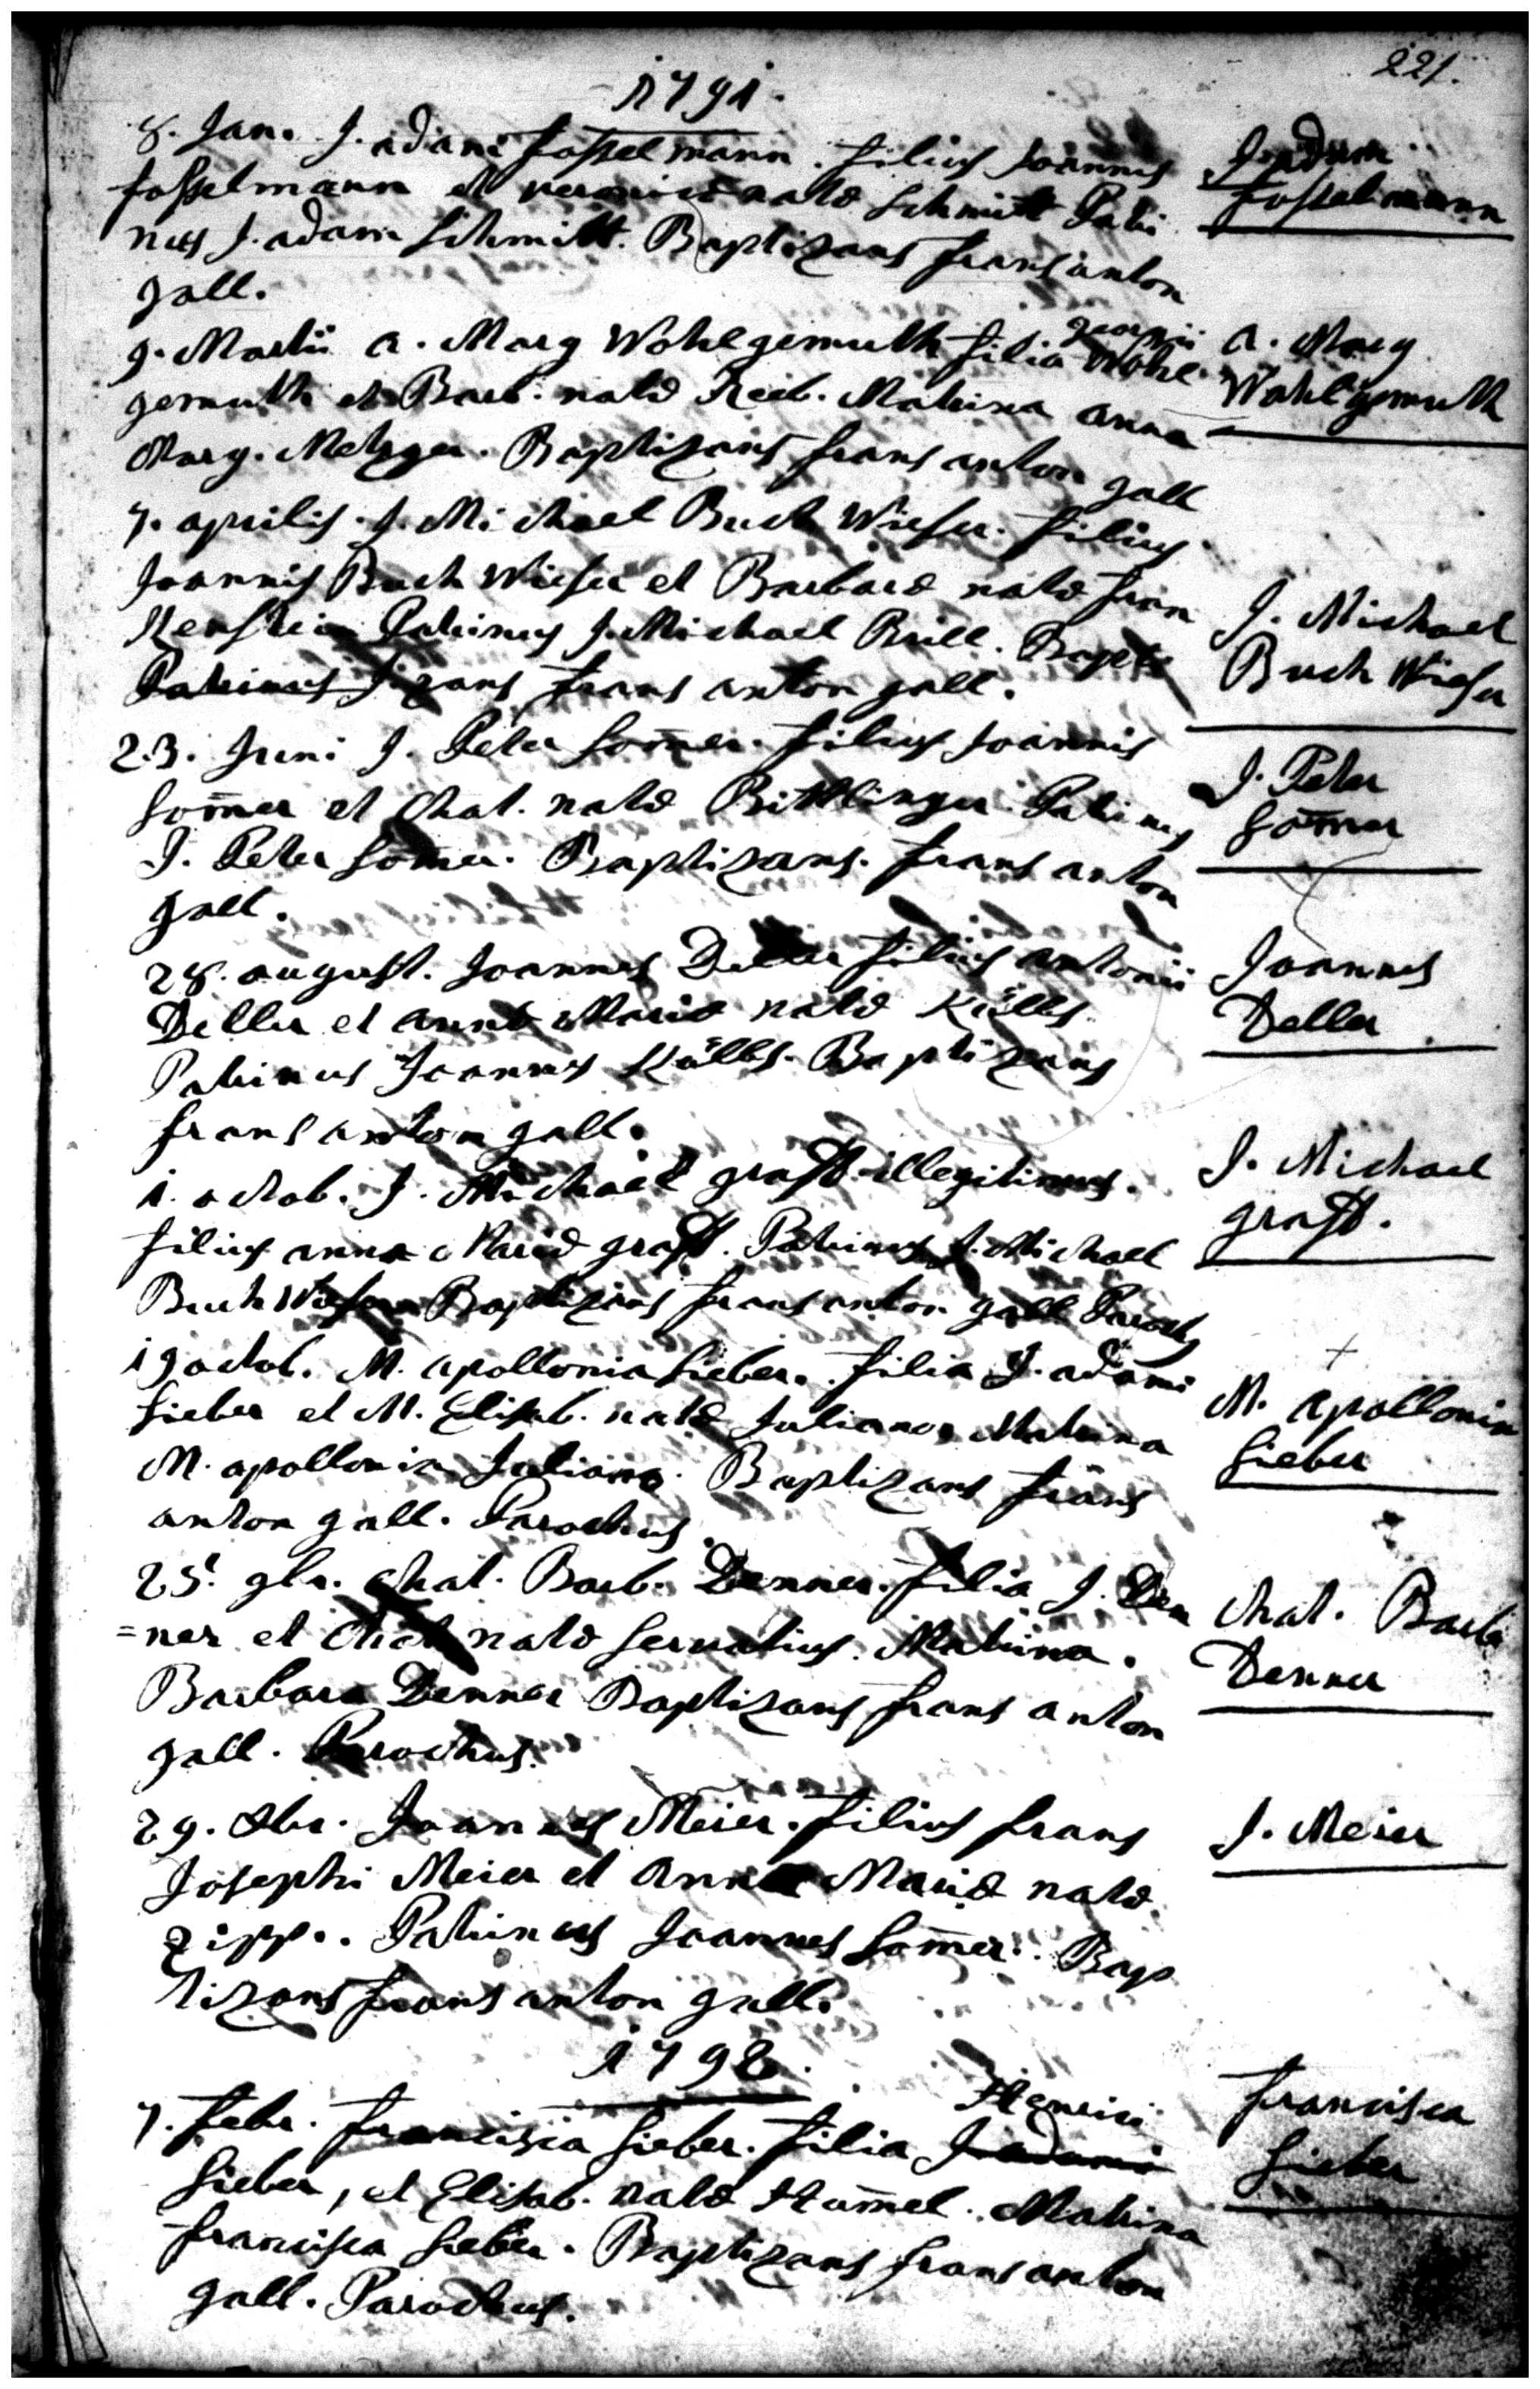 221.
1791.
8. Jan. J. adam fosselmann. filius Joannis
fosselmann et veronicæ natæ Schmitt Patri
nus J. adam Schmitt. Baptizans frans anton
gall.
J. adam
fosselmann
9. Martii a. Marg Wohlgemuth filia georgii Wohl
gemuth et Barb. natæ Reeb. Matrina anna
Marg. Metzger. Baptizans frans anton gall
a. Marg
Wohlgemuth
7. aprilis. J. Michael Buch Wieser. filius
Joannis Buch Wieser et Barbaræ natæ fran
Kenstein Patrinus J. Michael Brill. Bapti
Patrinus J. zans frans anton gall.
J. Michael
Buch Wieser
23. Juni J. Peter Som̄er. filius Joannis
Som̄er et Chat. natæ Bittlinger Patrinus
J. Peter Som̄er. Baptizans. frans anton
gall.
J. Peter
Som̄er
28. august. Joannes Deller filius antonii
Deller et annæ Mariæ natæ Külbs.
Patrinus Joannes Külbs. Baptizans
frans anton gall.
Joannes
Deller
1. octob. J. Michael graff illegitimus.
filius anna Mariæ graff. Patrinus J. Michael
Buch Wieser Baptizans frans anton gall Parochus
J. Michael
graff.
19 octob. M. apollonia Sieber. filia J. adami
Sieber et M. Elisab. natæ Juliano. Matrina
M. apollonia Juliano. Baptizans frans
anton gall. Parochus.
M. apollonia
Sieber
25. 9br. Chat. Barb. Denner. filia J. Den
=ner et Chat natæ Servatius. Matrina.
Barbara Denner Baptizans frans anton
gall. Parochus.
Chat. Barb.
Denner
29. Xbr. Joannes Meier. filius frans
Josephi Meier et Annæ Mariæ natæ
Zipp.. Patrinus Joannes Som̄er. Bap
tizans frans anton gall.
J. Meier
1792.
7. febr. francisca Sieber. filia J. adami Henrici
Sieber, et Elisab. natæ Hum̄el. Matrina
francisca Sieber. Baptizans frans anton
gall. Parochus.
francisca
Sieber